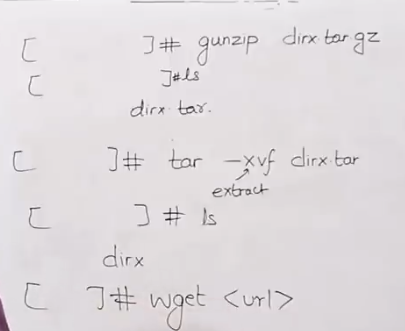 [ ]# gunzip dirx.tar.gz
[ ]# ls
dirx.tar.
[ ]# tar -xvf dirx.tar
extract
[ ] # ls
dirx
[ ]# wget <url>